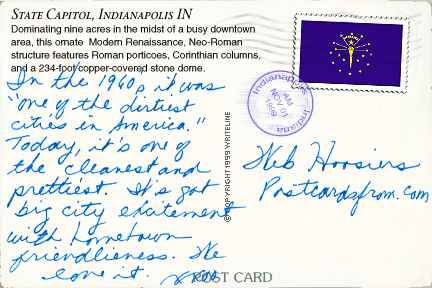 STATE CAPITOL, INDIANAPOLIS IN
Dominating nine acres in the midst of a busy downtown
area, this ornate Modern Renaissance, Neo-Roman
structure features Roman porticoes, Corinthian columns,
and a 234-foot copper-covered stone dome.
In the 1960s it was
"one of the dirtiest
cities in America."
Today, it's one of
the cleanest and
prettiest. It's got
big city excitement
with hometown
friendlieness. We
love it.
POST CARD
© COPYRIGHT 1999 WRITELINE
Indianapolis
AM
NOV 01
1999
Indiana
Web Hoosiers
Postcardsfrom.com